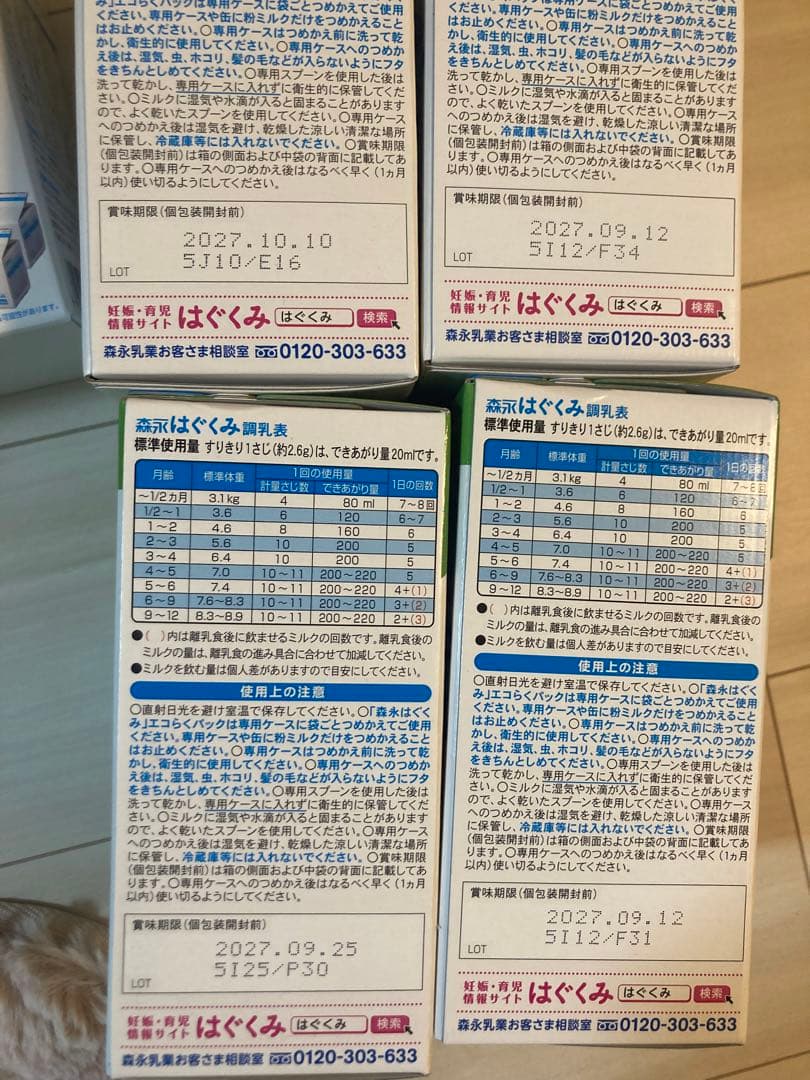 み」エコらくパックは専用ケースに袋ごとつめかえてご使用
ください。専用ケースや缶に粉ミルクだけをつめかえること
はお止めください。○専用ケースはつめかえ前に洗って乾
かし、衛生的に使用してください。○専用ケースへのつめか
え後は、湿気、虫、ホコリ、髪の毛などが入らないようにフタ
をきちんとしめてください。○専用スプーンを使用した後は
洗って乾かし、専用ケースに入れずに衛生的に保管してくだ
さい。○ミルクに湿気や水滴が入ると固まることがあります
ので、よく乾いたスプーンを使用してください。○専用ケース
へのつめかえ後は湿気を避け、乾燥した涼しい清潔な場所
に保管し、冷蔵庫等には入れないでください。○賞味期限
(個包装開封前)は箱の側面および中袋の背面に記載してあ
ります。○専用ケースへのつめかえ後はなるべく早く(1ヵ月
以内)使い切るようにしてください。
賞味期限(個包装開封前)
2027.10.10
5J10/E16
LOT
妊娠・育児
情報サイト はぐくみ はぐくみ 検索
森永乳業お客さま相談室 0120-303-633
用ください。専用ケースや缶に粉ミルクだけをつめかえること
はお止めください。○専用ケースはつめかえ前に洗って乾
かし、衛生的に使用してください。○専用ケースへのつめか
え後は、湿気、虫、ホコリ、髪の毛などが入らないようにフタ
をきちんとしめてください。○専用スプーンを使用した後は
洗って乾かし、専用ケースに入れずに衛生的に保管してくだ
さい。○ミルクに湿気や水滴が入ると固まることがあります
ので、よく乾いたスプーンを使用してください。○専用ケース
へのつめかえ後は湿気を避け、乾燥した涼しい清潔な場所
に保管し、冷蔵庫等には入れないでください。○賞味期限
(個包装開封前)は箱の側面および中袋の背面に記載してあ
ります。○専用ケースへのつめかえ後はなるべく早く(1ヵ月
以内)使い切るようにしてください。
賞味期限(個包装開封前)
2027.09.12
5I12/F34
LOT
妊娠・育児
情報サイト はぐくみ はぐくみ 検索
森永乳業お客さま相談室 0120-303-633
可能性があります。
森永はぐくみ 調乳表
標準使用量 すりきり1さじ(約2.6g)は、できあがり量20mlです。
月齢 標準体重 1回の使用量 1日の回数
計量さじ数 できあがり量
～1/2カ月 3.1kg 4 80 ml 7～8回
1/2～1 3.6 6 120 6～7
1～2 4.6 8 160 6
2～3 5.6 10 200 5
3～4 6.4 10 200 5
4～5 7.0 10～11 200～220 5
5～6 7.4 10～11 200～220 4+(1)
6～9 7.6～8.3 10～11 200～220 3+(2)
9～12 8.3～8.9 10～11 200～220 2+(3)
●( )内は離乳食後に飲ませるミルクの回数です。離乳食後の
ミルクの量は、離乳食の進み具合に合わせて加減してください。
●ミルクを飲む量は個人差がありますので目安にしてください。
使用上の注意
○直射日光を避け室温で保存してください。○「森永はぐく
み」エコらくパックは専用ケースに袋ごとつめかえてご使用
ください。専用ケースや缶に粉ミルクだけをつめかえること
はお止めください。○専用ケースはつめかえ前に洗って乾
かし、衛生的に使用してください。○専用ケースへのつめか
え後は、湿気、虫、ホコリ、髪の毛などが入らないようにフタ
をきちんとしめてください。○専用スプーンを使用した後は
洗って乾かし、専用ケースに入れずに衛生的に保管してくだ
さい。○ミルクに湿気や水滴が入ると固まることがあります
ので、よく乾いたスプーンを使用してください。○専用ケース
へのつめかえ後は湿気を避け、乾燥した涼しい清潔な場所
に保管し、冷蔵庫等には入れないでください。○賞味期限
(個包装開封前)は箱の側面および中袋の背面に記載してあ
ります。○専用ケースへのつめかえ後はなるべく早く(1ヵ月
以内)使い切るようにしてください。
賞味期限(個包装開封前)
2027.09.25
5I25/P30
LOT
妊娠・育児
情報サイト はぐくみ はぐくみ 検索
森永乳業お客さま相談室 0120-303-633
森永はぐくみ 調乳表
標準使用量 すりきり1さじ(約2.6g)は、できあがり量20mlです。
月齢 標準体重 1回の使用量 1日の回数
計量さじ数 できあがり量
～1/2カ月 3.1kg 4 80 ml 7～8回
1/2～1 3.6 6 120 6～7
1～2 4.6 8 160 6
2～3 5.6 10 200 5
3～4 6.4 10 200 5
4～5 7.0 10～11 200～220 5
5～6 7.4 10～11 200～220 4+(1)
6～9 7.6～8.3 10～11 200～220 3+(2)
9～12 8.3～8.9 10～11 200～220 2+(3)
●( )内は離乳食後に飲ませるミルクの回数です。離乳食後の
ミルクの量は、離乳食の進み具合に合わせて加減してください。
●ミルクを飲む量は個人差がありますので目安にしてください。
使用上の注意
○直射日光を避け室温で保存してください。○「森永はぐく
み」エコらくパックは専用ケースに袋ごとつめかえてご使用
ください。専用ケースや缶に粉ミルクだけをつめかえること
はお止めください。○専用ケースはつめかえ前に洗って乾
かし、衛生的に使用してください。○専用ケースへのつめか
え後は、湿気、虫、ホコリ、髪の毛などが入らないようにフタ
をきちんとしめてください。○専用スプーンを使用した後は
洗って乾かし、専用ケースに入れずに衛生的に保管してくだ
さい。○ミルクに湿気や水滴が入ると固まることがあります
ので、よく乾いたスプーンを使用してください。○専用ケース
へのつめかえ後は湿気を避け、乾燥した涼しい清潔な場所
に保管し、冷蔵庫等には入れないでください。○賞味期限
(個包装開封前)は箱の側面および中袋の背面に記載してあ
ります。○専用ケースへのつめかえ後はなるべく早く(1ヵ月
以内)使い切るようにしてください。
賞味期限(個包装開封前)
2027.09.12
5I12/F31
LOT
妊娠・育児
情報サイト はぐくみ はぐくみ 検索
森永乳業お客さま相談室 0120-303-633